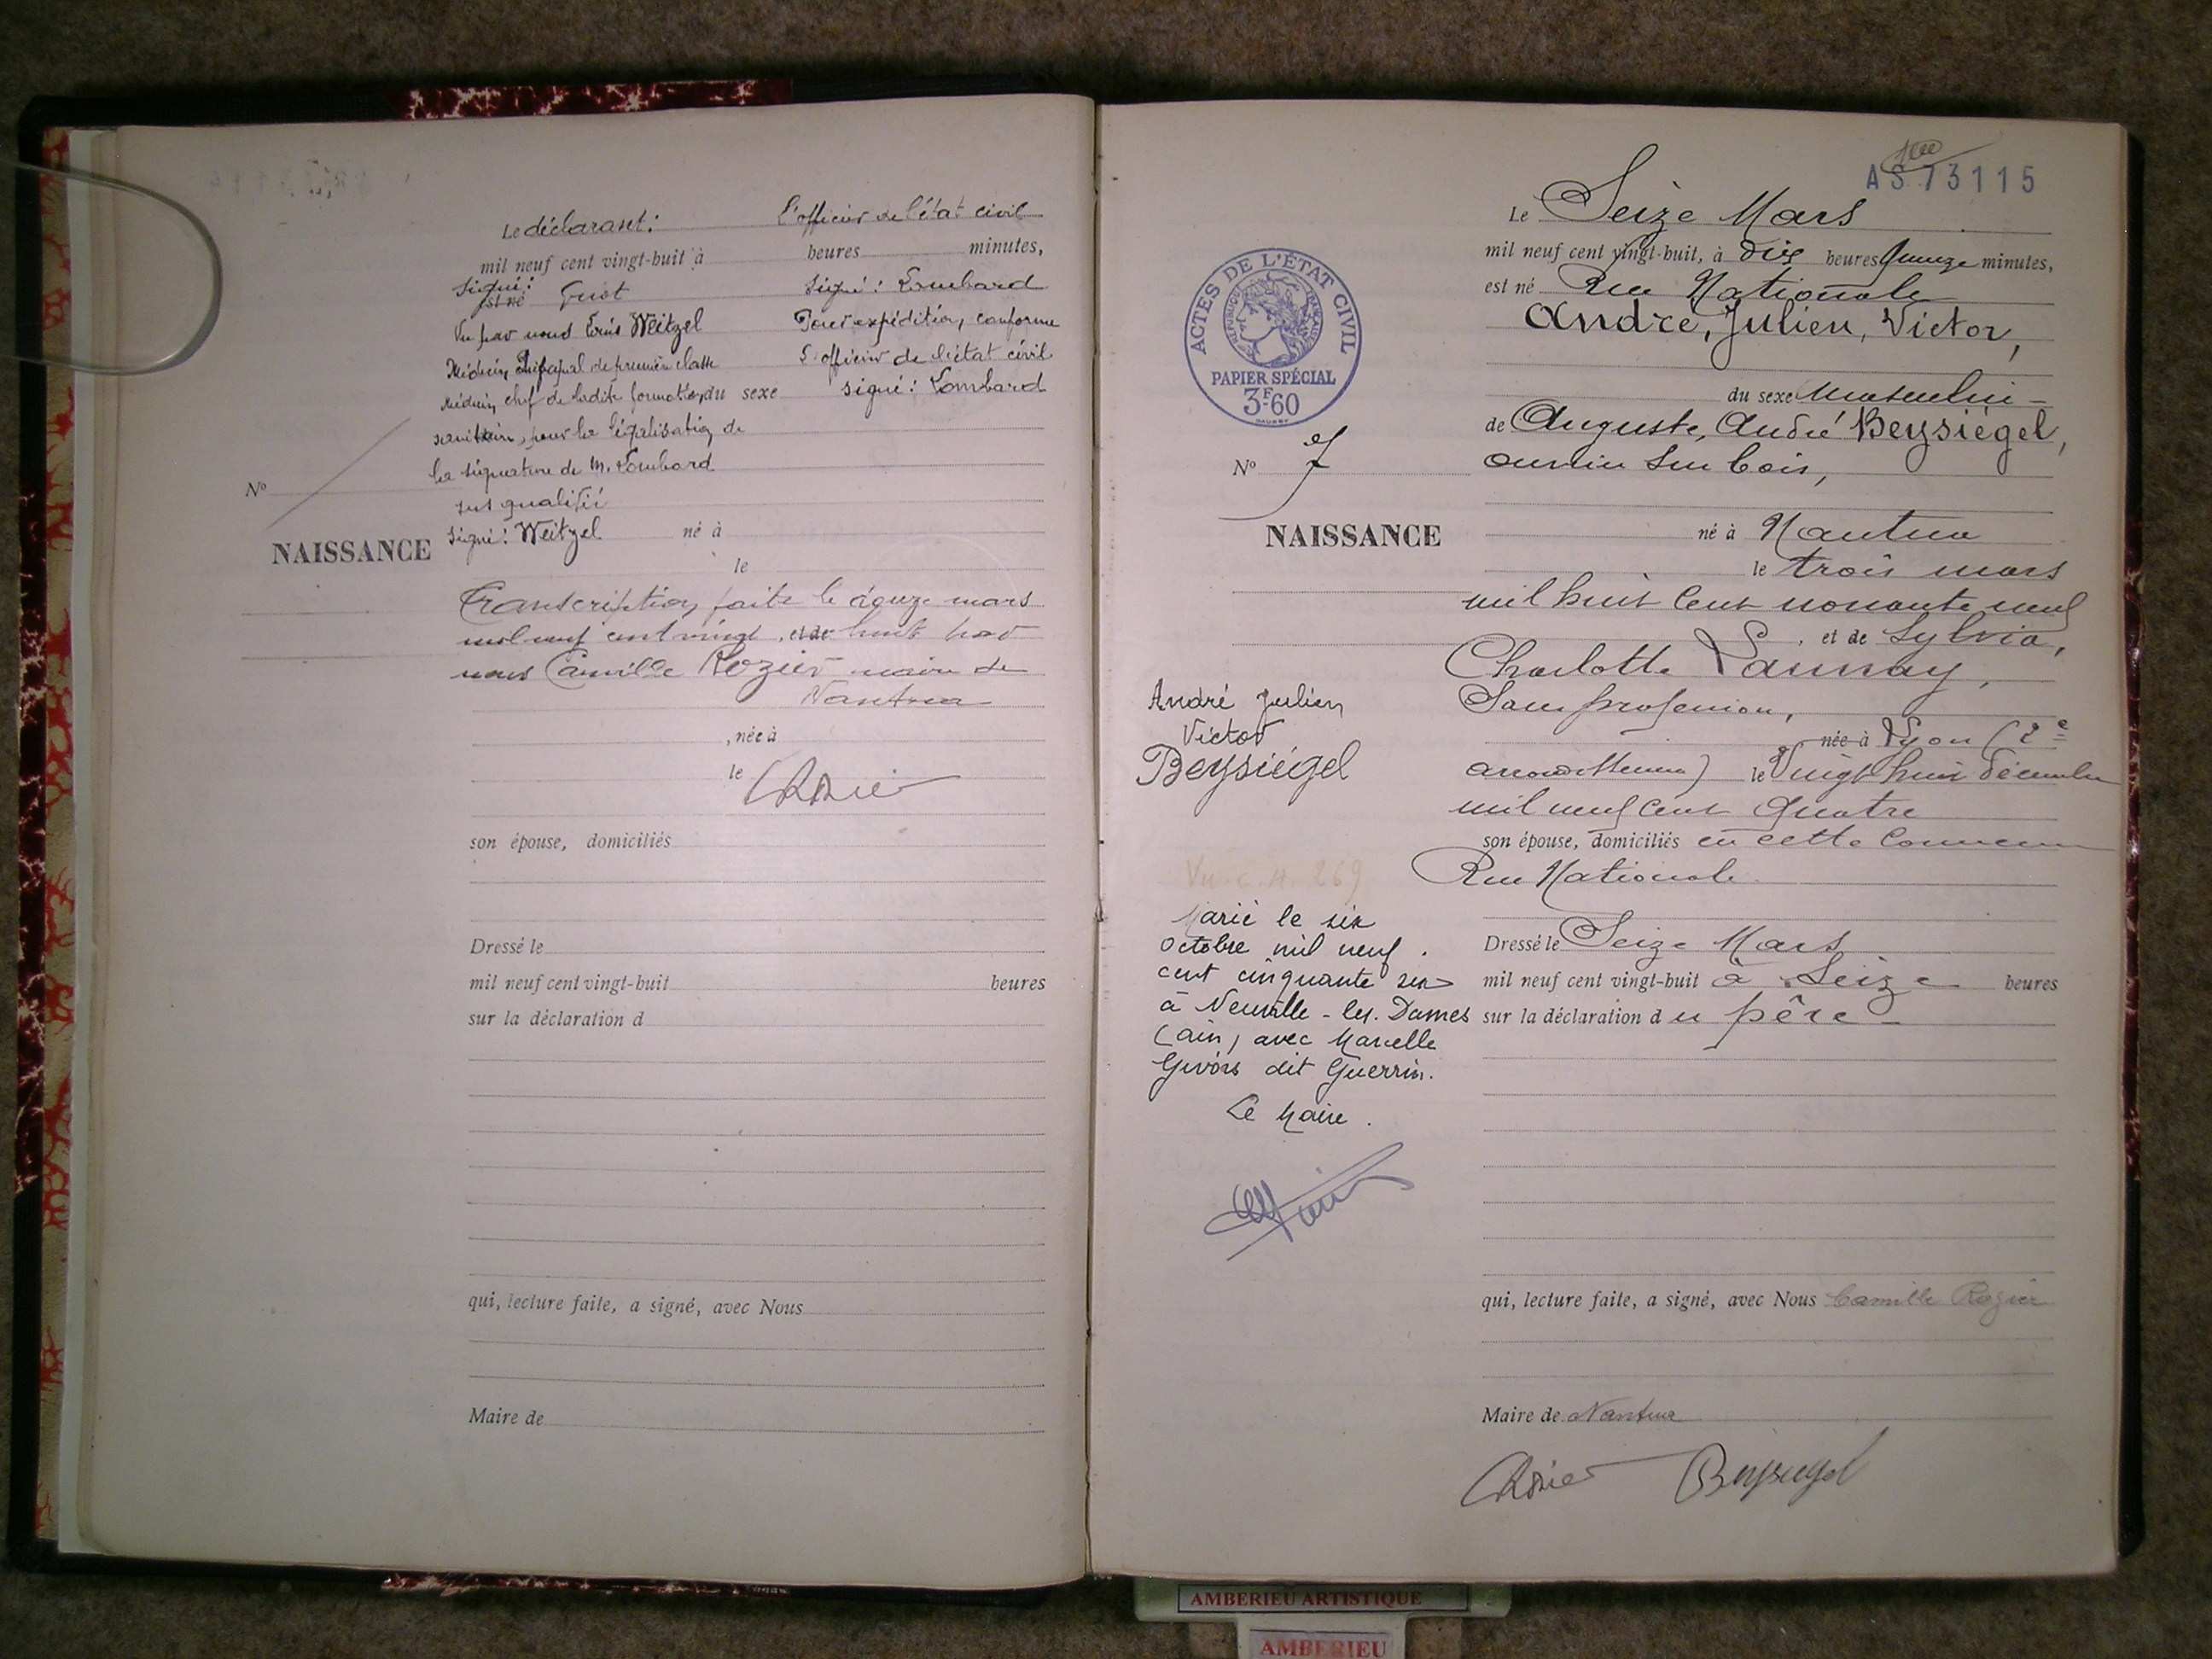 Le déclarant:
L'officier de l'état civil
mil neuf cent vingt-huit à heures minutes,
Signé:
est né
Signé: Lombard
Vu par nous Weitzel
Pour expédition, conforme
Médecin Principal de première classe
L'officier de l'état civil
Médecin chef de ladite formation du sexe
signé: Lombard
sanitaire, pour la légalisation de
la signature de M. Lombard
Nº
sus qualifié
signé: Weitzel né à
NAISSANCE
le
Transcription faite le douze mars
mil neuf cent vingt, et de huit par
nous Camille Rozier maire de
Nantua
, née à
le
son épouse, domiciliés
Dressé le
mil neuf cent vingt-huit heures
sur la déclaration d
qui, lecture faite, a signé, avec Nous
Maire de
AS 73115
Le Seize Mars
mil neuf cent vingt-huit, à dix heures quinze minutes,
est né Rue Nationale
André, Julien, Victor,
du sexe Masculin
de Auguste, André Beysiégel,
ouvrier sur bois,
né à Nantua
le trois mars
mil huit cent nonante neuf
, et de Sylvia,
Charlotte Launay,
Sans profession,
née à Lyon (2e
arrondissement) le Vingt huit décembre
mil neuf cent quatre
son épouse, domiciliés en cette commune
Rue Nationale
Dressé le Seize Mars
mil neuf cent vingt-huit à Seize heures
sur la déclaration du père
qui, lecture faite, a signé, avec Nous Camille Rozier
Maire de Nantua
Rozier Beysiegel
ACTES DE L'ÉTAT CIVIL
RÉPUBLIQUE FRANÇAISE
PAPIER SPÉCIAL
3F.60
Nº 7
NAISSANCE
André Julien
Victor
Beysiégel
Vu C.M. 269
Marié le six
octobre mil neuf
cent cinquante six
à Neuville-les-Dames
(ain) avec Marcelle
Givois dit Guerrin.
Le Maire.
AMBERIEU ARTISTIQUE
AMBERIEU